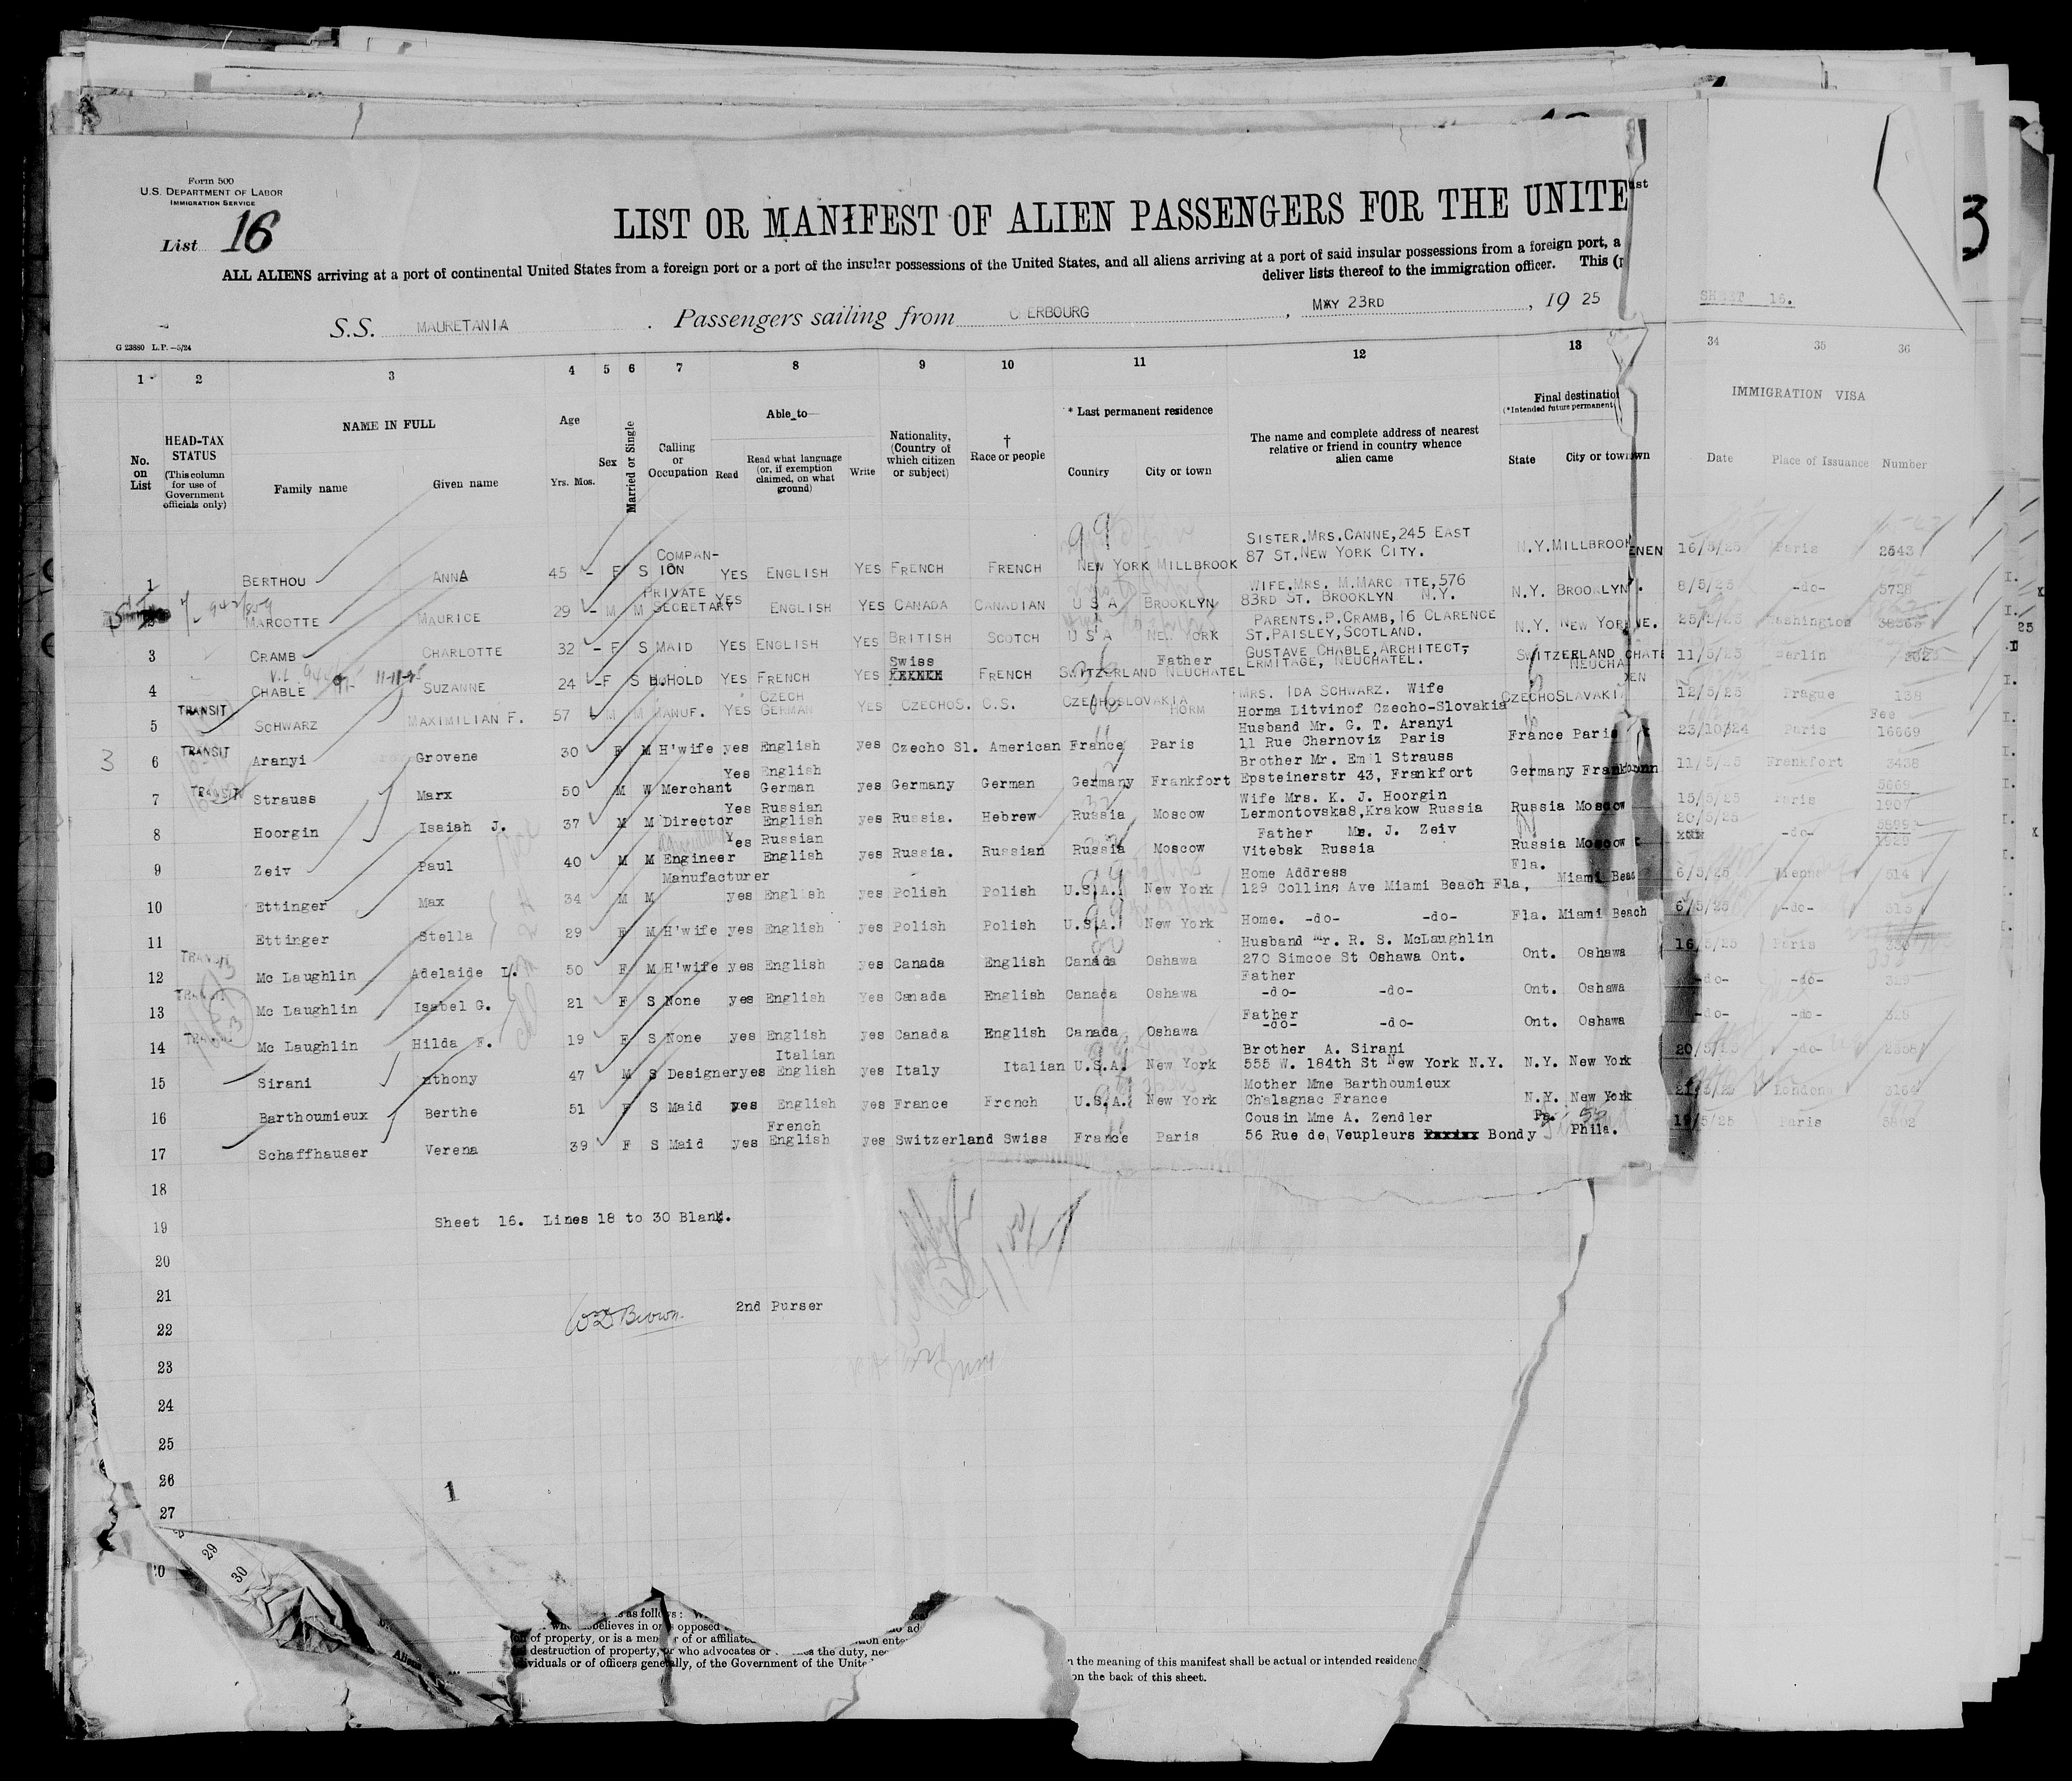 Form 500
U.S. DEPARTMENT OF LABOR
IMMIGRATION SERVICE
List 16
LIST OR MANIFEST OF ALIEN PASSENGERS FOR THE UNITE
ALL ALIENS arriving at a port of continental United States from a foreign port or a port of the insular possessions of the United States, and all aliens arriving at a port of said insular possessions from a foreign port, a
deliver lists thereof to the immigration officer. This (
3
S.S. MAURETANIA . Passengers sailing from C ERBOURG , MAY 23RD , 19 25
SHEET 16.
G 23880 L.P.—5/24
1 2 3 4 5 6 7 8 9 10 11 12 13 34 35 36
No. on List
HEAD-TAX STATUS (This column for use of Government officials only)
NAME IN FULL Family name Given name
Age Yrs. Mos.
Sex
Married or Single
Calling or Occupation
Able to Read Read what language (or, if exemption claimed, on what ground) Write
Nationality, (Country of which citizen or subject)
† Race or people
* Last permanent residence Country City or town
The name and complete address of nearest relative or friend in country whence alien came
Final destinatio (*Intended future permanent State City or town
IMMIGRATION VISA Date Place of Issuance Number
1 BERTHOU ANNA 45 F S COMPAN-ION YES ENGLISH YES FRENCH FRENCH NEW YORK MILLBROOK SISTER.MRS.CANNE,245 EAST 87 ST.NEW YORK CITY. N.Y.MILLBROOK 16/5/25 Paris 2543
MARCOTTE MAURICE 29 M M PRIVATE SECRETARY YES ENGLISH YES CANADA CANADIAN U S A BROOKLYN WIFE.MRS. M.MARCOTTE,576 83RD ST. BROOKLYN N.Y. N.Y. BROOKLYN 8/5/25 -do- 5728
3 CRAMB CHARLOTTE 32 F S MAID YES ENGLISH YES BRITISH SCOTCH U S A NEW YORK PARENTS.P.CRAMB,16 CLARENCE ST.PAISLEY,SCOTLAND. N.Y. NEW YORK 25/5/25 Washington
4 CHABLE SUZANNE 24 F S H.HOLD YES FRENCH YES Swiss FRENCH SWITZERLAND NEUCHATEL Father GUSTAVE CHABLE,ARCHITECT, ERMITAGE, NEUCHATEL. SWITZERLAND NEUCHA 11/5/25 Berlin
5 TRANSIT SCHWARZ MAXIMILIAN F. 57 M M MANUF. YES CZECH GERMAN YES CZECHOS. C.S. CZECHOSLOVAKIA HORM MRS. IDA SCHWARZ. Wife Horma Litvinof Czecho-Slovakia CZECHOSLAVAKIA 12/5/25 Prague 138
3
6 TRANSIT Aranyi Grovene 30 F M H'wife yes English yes Czecho Sl. American France Paris Husband Mr. G. T. Aranyi 11 Rue Charnoviz Paris France Paris 23/10/24 Paris Fee 16669
7 TRANSIT Strauss Marx 50 M W Merchant Yes English German yes Germany German Germany Frankfort Brother Mr. Emil Strauss Epsteinerstr 43, Frankfort Germany Frank 11/5/25 Frankfort 3438
8 Hoorgin Isaiah J. 37 M M Director Yes Russian English yes Russia. Hebrew Russia Moscow Wife Mrs. K. J. Hoorgin Lermontovska8,Krakow Russia Russia Moscow 15/5/25 Paris 5669 1907
9 Zeiv Paul 40 M M Engineer Yes Russian English yes Russia. Russian Russia Moscow Father Mr. J. Zeiv Vitebsk Russia Russia Moscow 20/5/25 -do- 5899 1929
10 Ettinger Max 34 M M Manufacturer yes English yes Polish Polish U.S.A. New York Home Address 129 Collins Ave Miami Beach Fla, Fla. Miami Beac 6/5/25 Vienna 514
11 Ettinger Stella 29 F M H'wife yes English yes Polish Polish U.S.A. New York Home. -do- -do- Fla. Miami Beach 6/5/25 -do- 515
12 TRANSIT Mc Laughlin Adelaide L. 50 F M H'wife yes English yes Canada English Canada Oshawa Husband Mr. R. S. McLaughlin 270 Simcoe St Oshawa Ont. Ont. Oshawa 16/5/25 Paris 330
13 TRANSIT Mc Laughlin Isabel G. 21 F S None yes English Yes Canada English Canada Oshawa Father -do- -do- Ont. Oshawa -do- -do- 329
14 TRANSIT Mc Laughlin Hilda F. 19 F S None yes English yes Canada English Canada Oshawa Father -do- -do- Ont. Oshawa -do- -do- 328
15 Sirani nthony 47 M S Designer yes Italian English yes Italy Italian U.S.A. New York Brother A. Sirani 555 W. 184th St New York N.Y. N.Y. New York 20/5/25 -do- 2358
16 Barthoumieux Berthe 51 F S Maid yes English yes France French U.S.A. New York Mother Mme Barthoumieux Chalagnac France N.Y. New York 21/5/25 London 3164
17 Schaffhauser Verena 39 F S Maid yes French English yes Switzerland Swiss France Paris Cousin Mme A. Zendler 56 Rue de Veupleurs Bondy Pa. Phila. 19/5/25 Paris 5802
18
Sheet 16. Lines 18 to 30 Blank.
19
20
21
WD Brown. 2nd Purser
22
23
24
25
26
1
27
29
30
as follows:
believes in or opposed
of property, or is a member of or affiliated
destruction of property, or who advocates or the duty,
ividuals or of officers generally, of the Government of the Unite
n the meaning of this manifest shall be actual or intended residenc
on the back of this sheet.